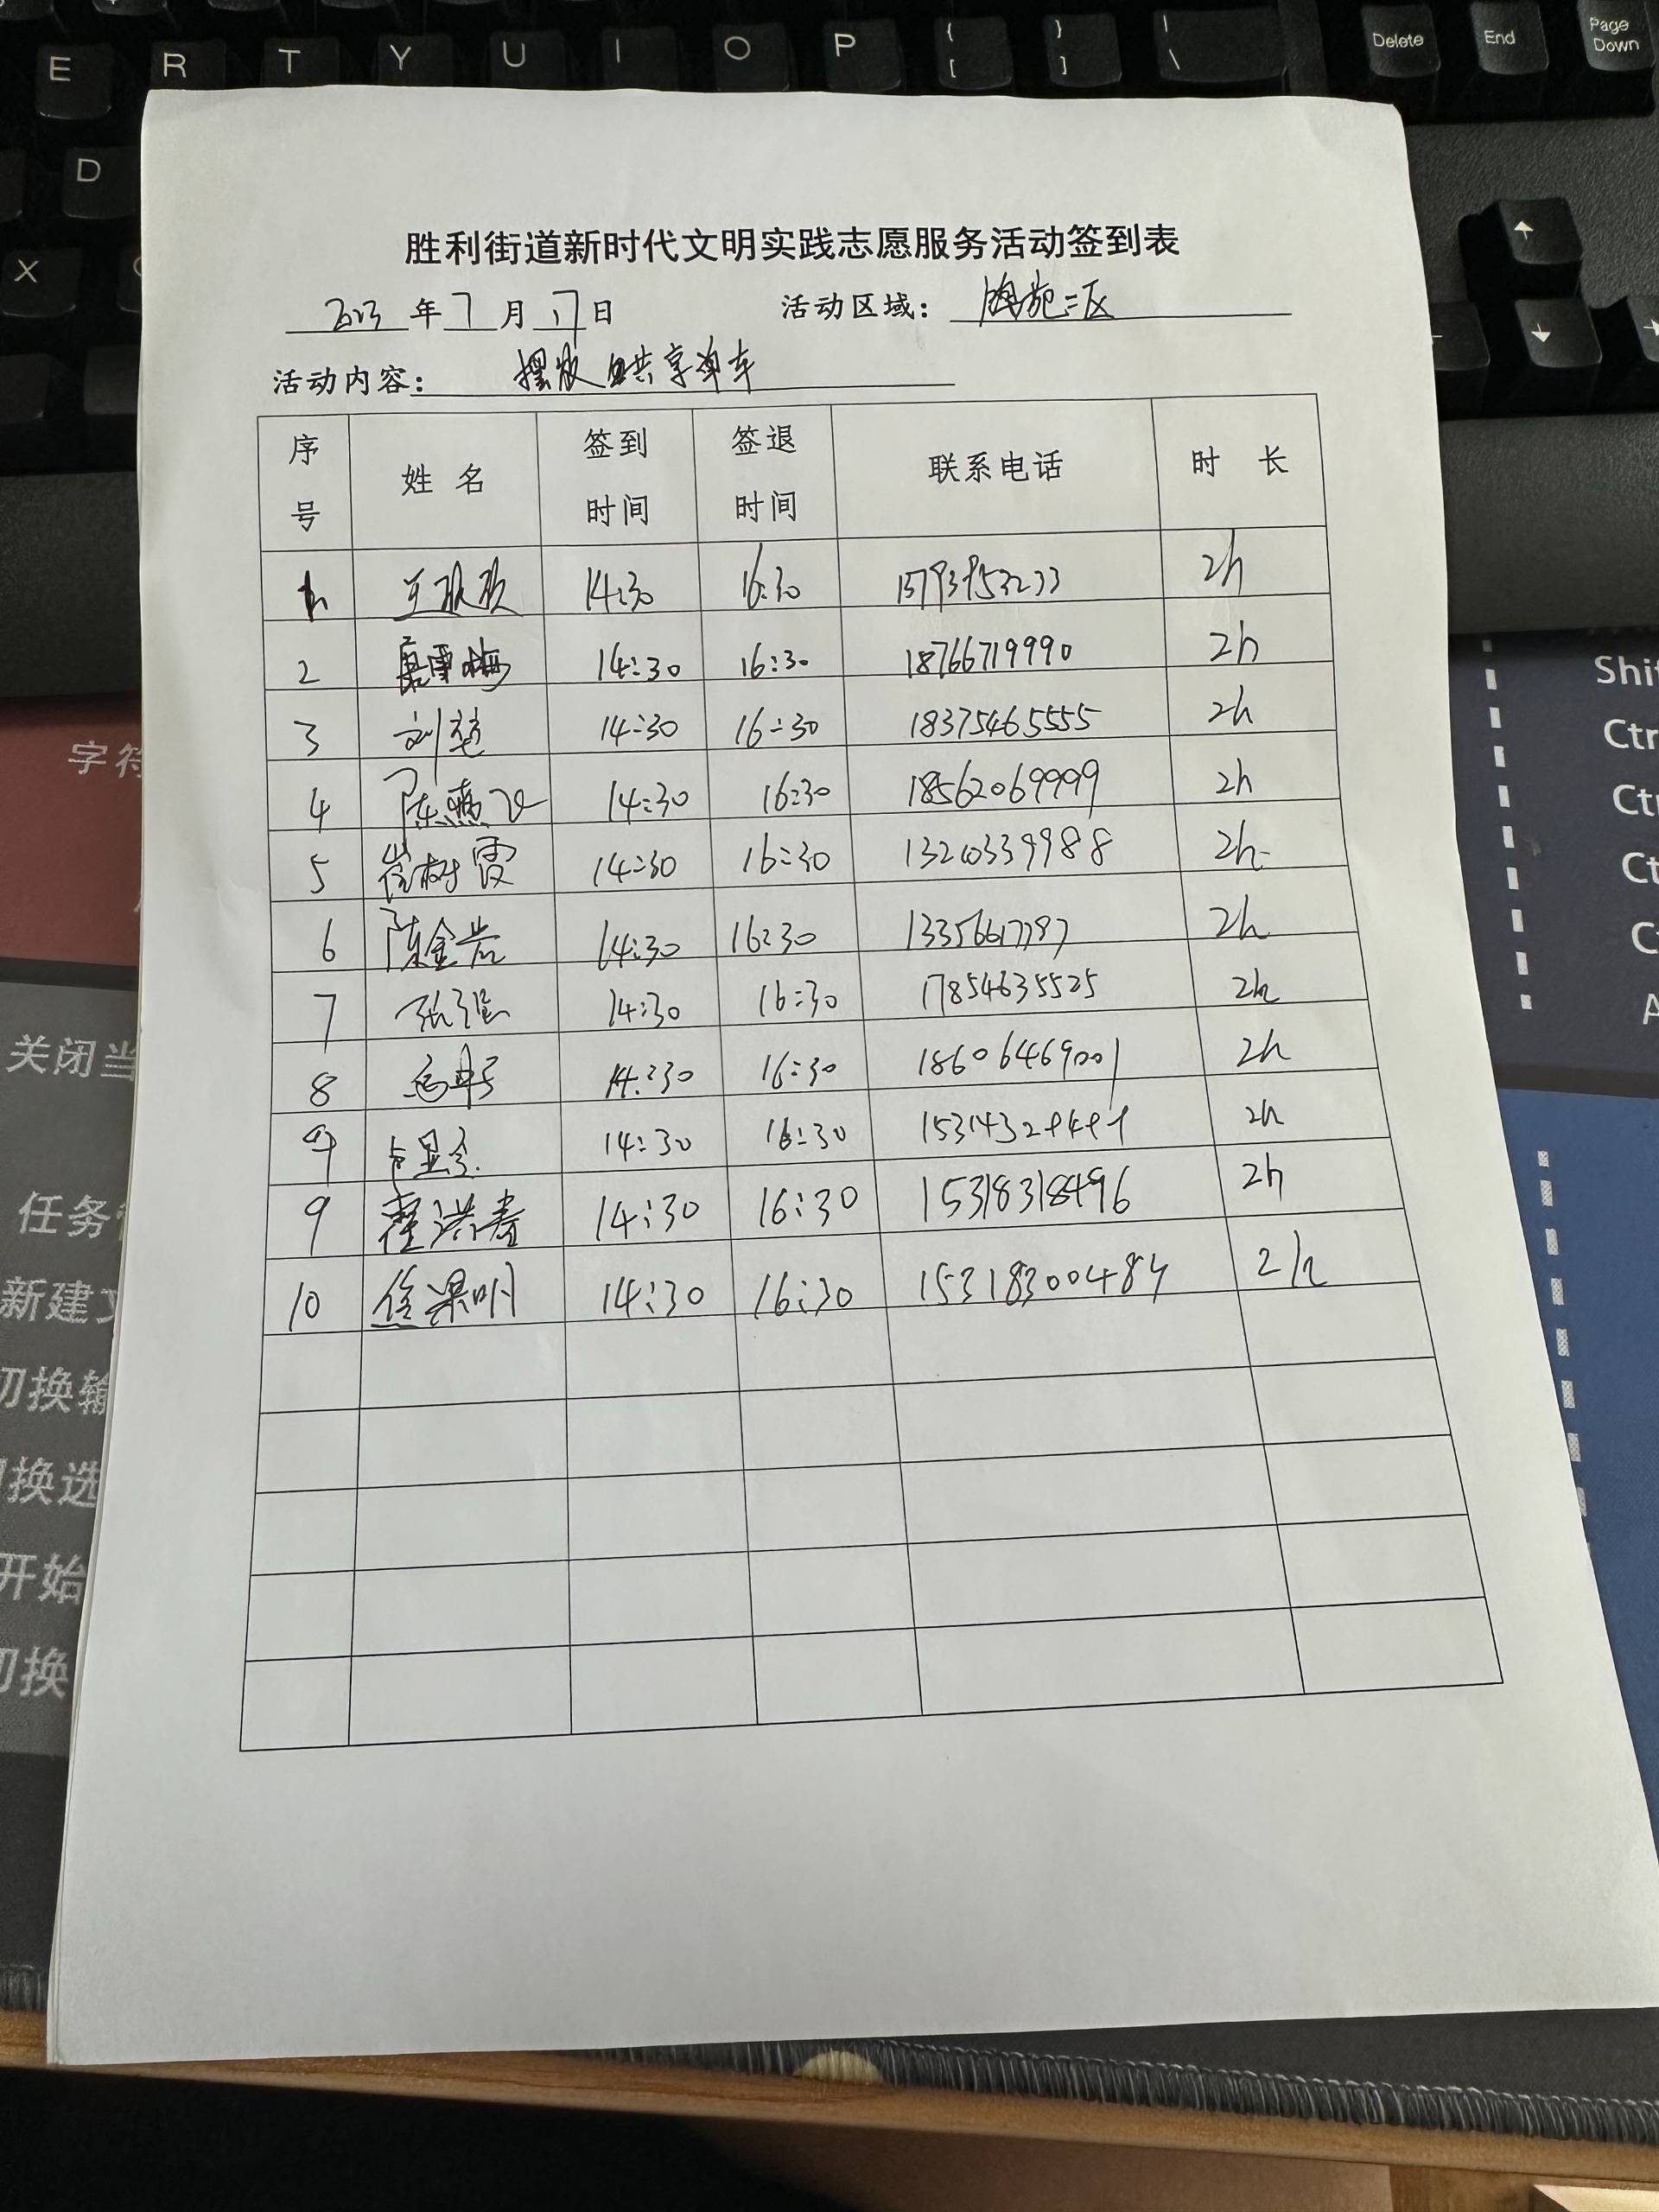 E R T Y U I O P { [ } ] | \ Delete End Page Down
D
X
胜利街道新时代文明实践志愿服务活动签到表
2023 年 7 月 17 日 活动区域: 海苑二区
活动内容: 摆放 共享单车
序号 姓 名 签到时间 签退时间 联系电话 时 长
14:30 16:30 2h
2 16:30 14:30 18766719990 2h
3 刘楚 14:30 16:30 18375465555 2h
4 陈燕飞 14:30 16:30 18562069999 2h
5 崔树霞 14:30 16:30 13210339988 2h
6 陈金岩 14:30 16:30 2h
7 张强 14:30 16:30 17854635525 2h
8 14:30 16:30 18606469001 2h
14:30 16:30 2h
9 霍洪春 14:30 16:30 15318318496 2h
10 14:30 16:30 15318300484 2h
字符
关闭当
任务
新建文
切换输
换选
开始
切换
Shi
Ctr
Ctr
Ct
C
A